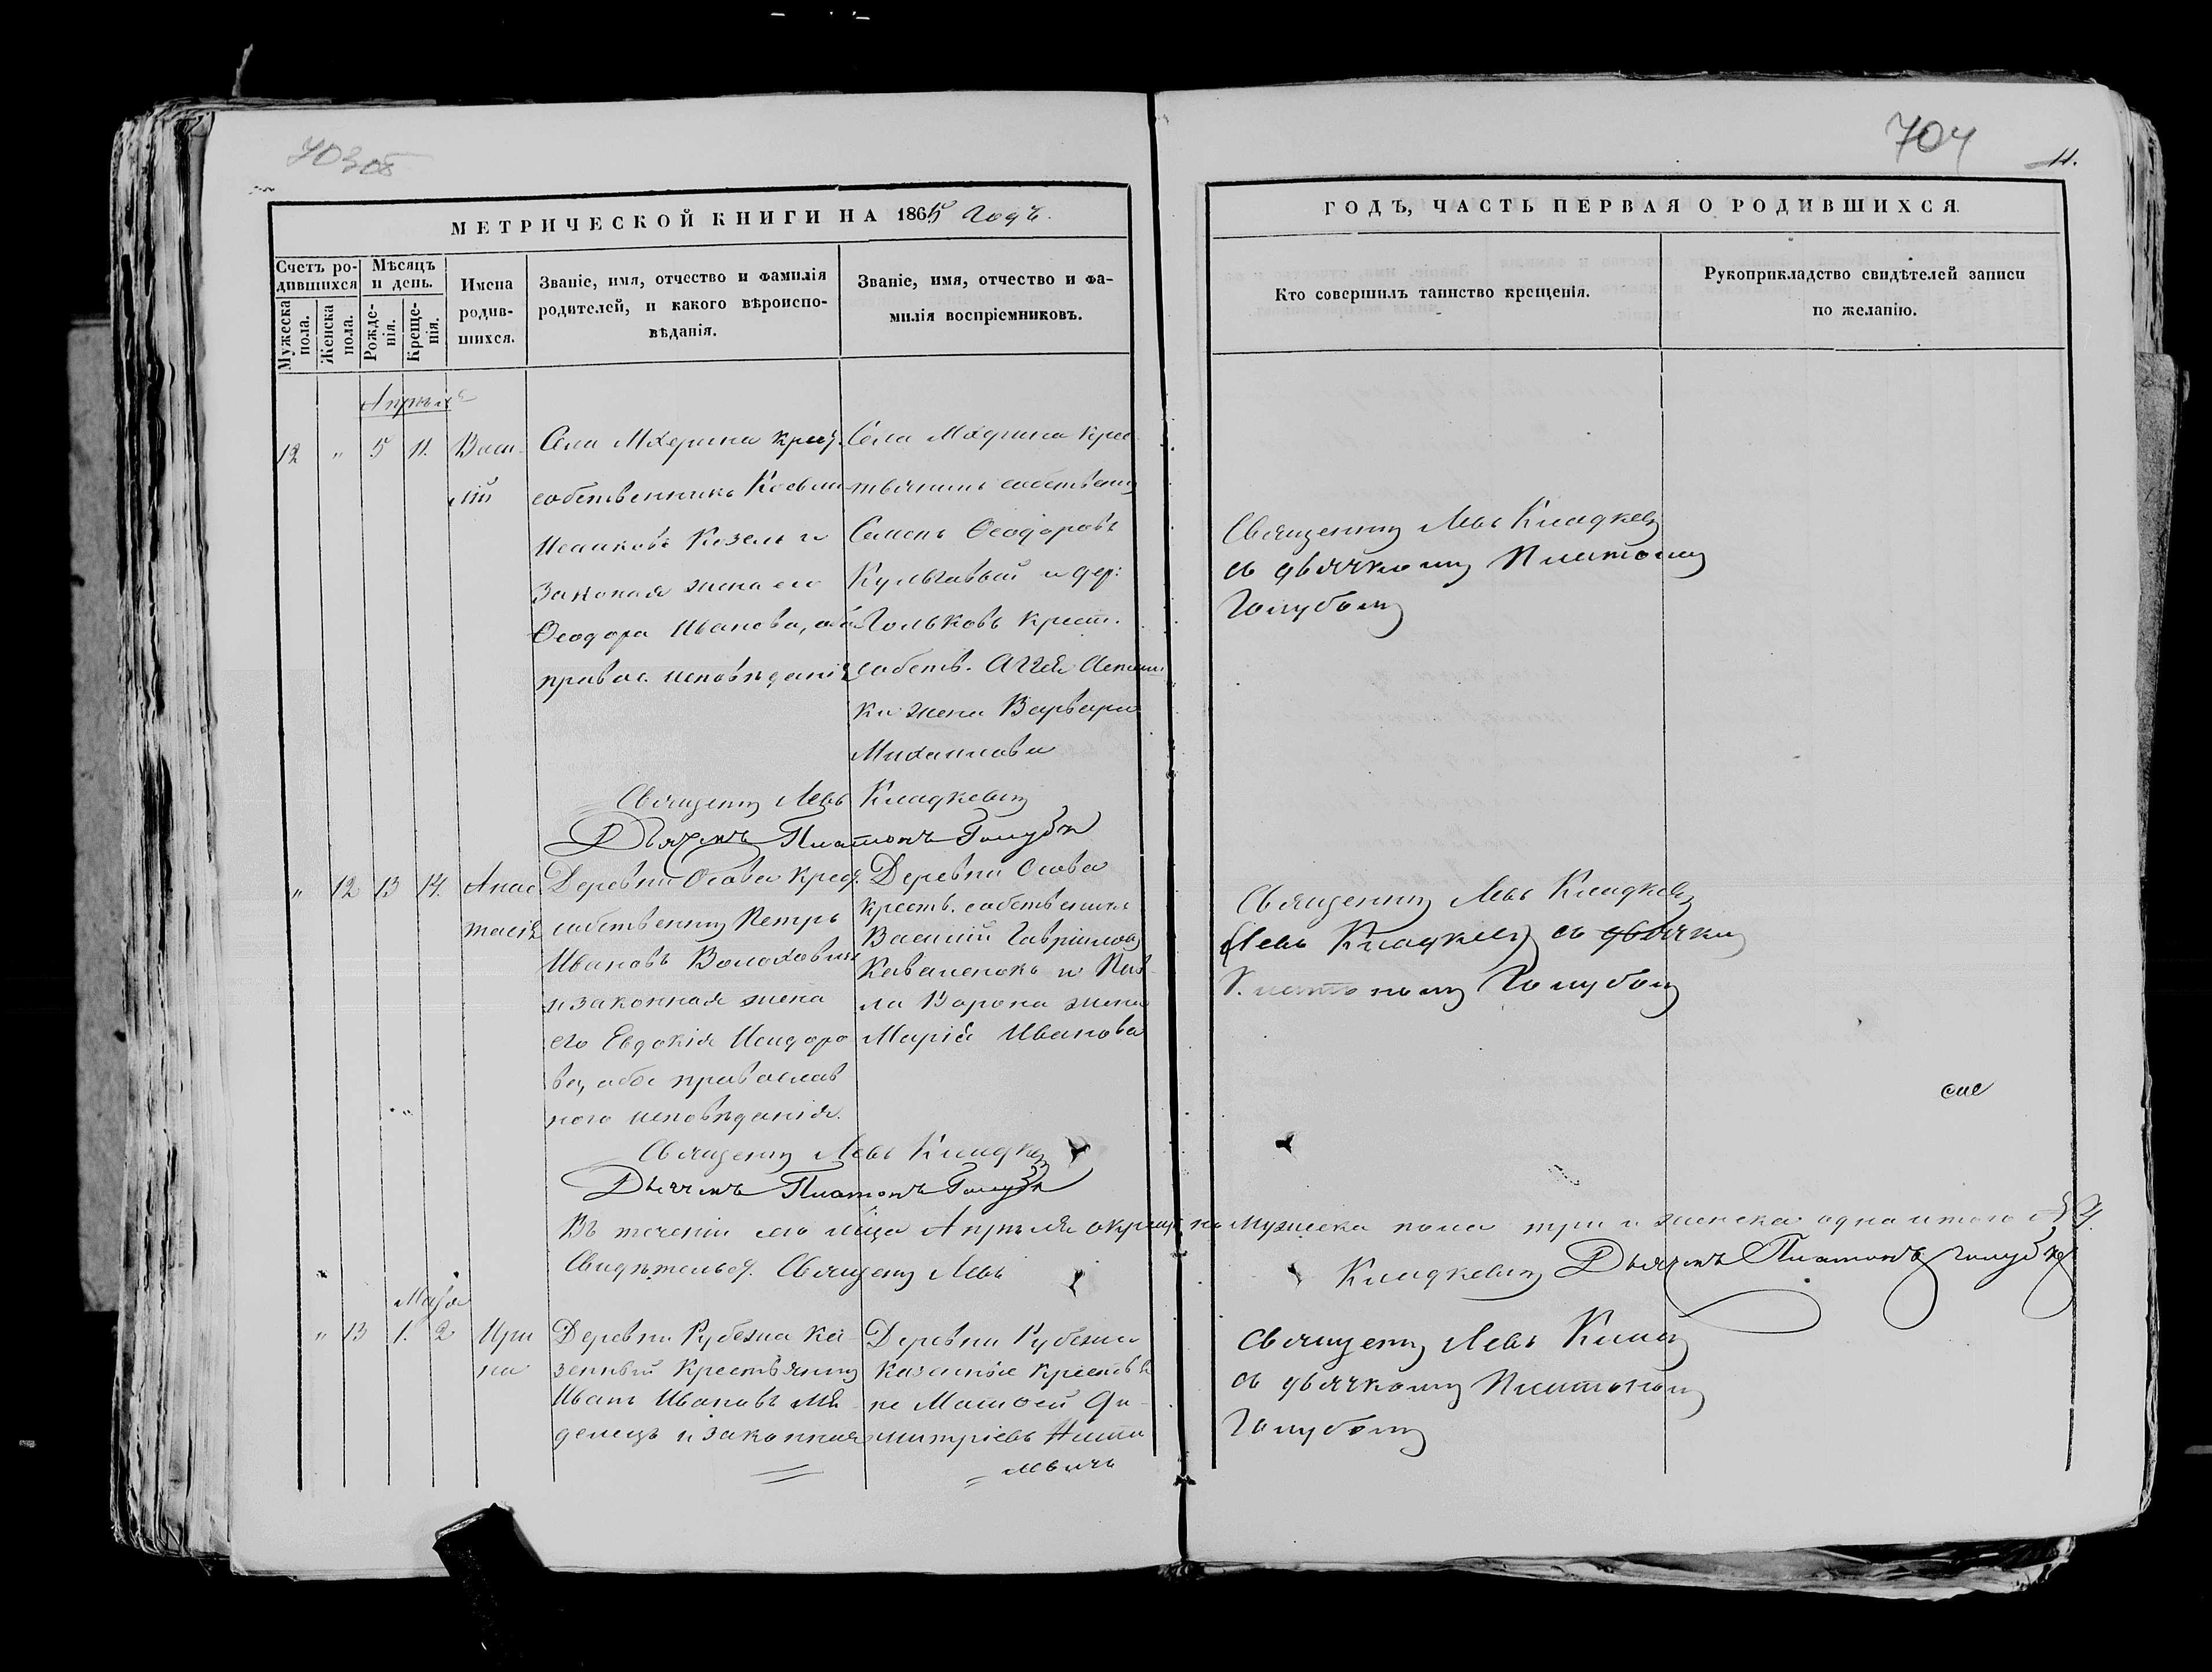 703об
704
11.
МЕТРИЧЕСКОЙ КНИГИ НА 1865 Годъ.
Счетъ ро-
дившихся
Мужеска
пола.
Женска
пола.
Мѣсяцъ
и день.
Рожде-
нія.
Креще-
нія.
Имена
родив-
шихся.
Званіе, имя, отчество и фамилія
родителей, и какого вѣроиспо-
вѣданія.
Званіе, имя, отчество и фа-
милія воспріемниковъ.
ГОДЪ, ЧАСТЬ ПЕРВАЯ О РОДИВШИХСЯ.
Кто совершилъ таинство крещенія.
Рукоприкладство свидѣтелей записи
по желанію.
Апрѣля
12 " 5 11. Васи-
лій
Села Мхерина крес.
собственникъ Косьма
Исааковъ Козелъ и
законая жена его
Ѳеодора Иванова, оба
правос. исповѣданія
Села Мхерина крес
тьянинъ собствен
Семенъ Ѳеодоровъ
Кульгавый и дер:
Гольковъ крест.
собств. Аггея
ка жена Варвара
Михаилова
Священ Левъ Кладкевич
съ дьячкомъ Платоном
Голубом
Священ Левъ Кладкевич
Дьячекъ Платонъ Голубъ
" 12 13 14. Анас
тасія
Деревни Осова крес.
собственни Петръ
Ивановъ Волоховичъ
и законная жена
его Евдокія Исидоро
ва, обое православ
ного исповѣданія.
Деревни Осова
крестъ. собственникъ
Василій Гавріиловъ
Коваленокъ и Пав
ла Ворона жена
Марія Иванова
Священ Левъ Кладкев
Левъ Кладкев съ дьячком
Платоном Голубом
сие
Священ Левъ Кладке
Дьячекъ Платонъ Голубъ
Въ теченіи сего мѣсца Апрѣля окрещено мужеска пола три и женска одна итого 4.
Свидѣтельст. Священ Левъ Кладкевич Дьячекъ Платонъ Голубъ
Маія
" 13 1. 2 Ири
на
Деревни Рубежа ка
зенный крестьянин
Иванъ Ивановъ Мя
делецъ и законная
Деревни Рубежа
казенные крестья
не Матѳей Ди
митріевъ
Священ Левъ Клад
съ дьячкомъ Платоном
Голубом